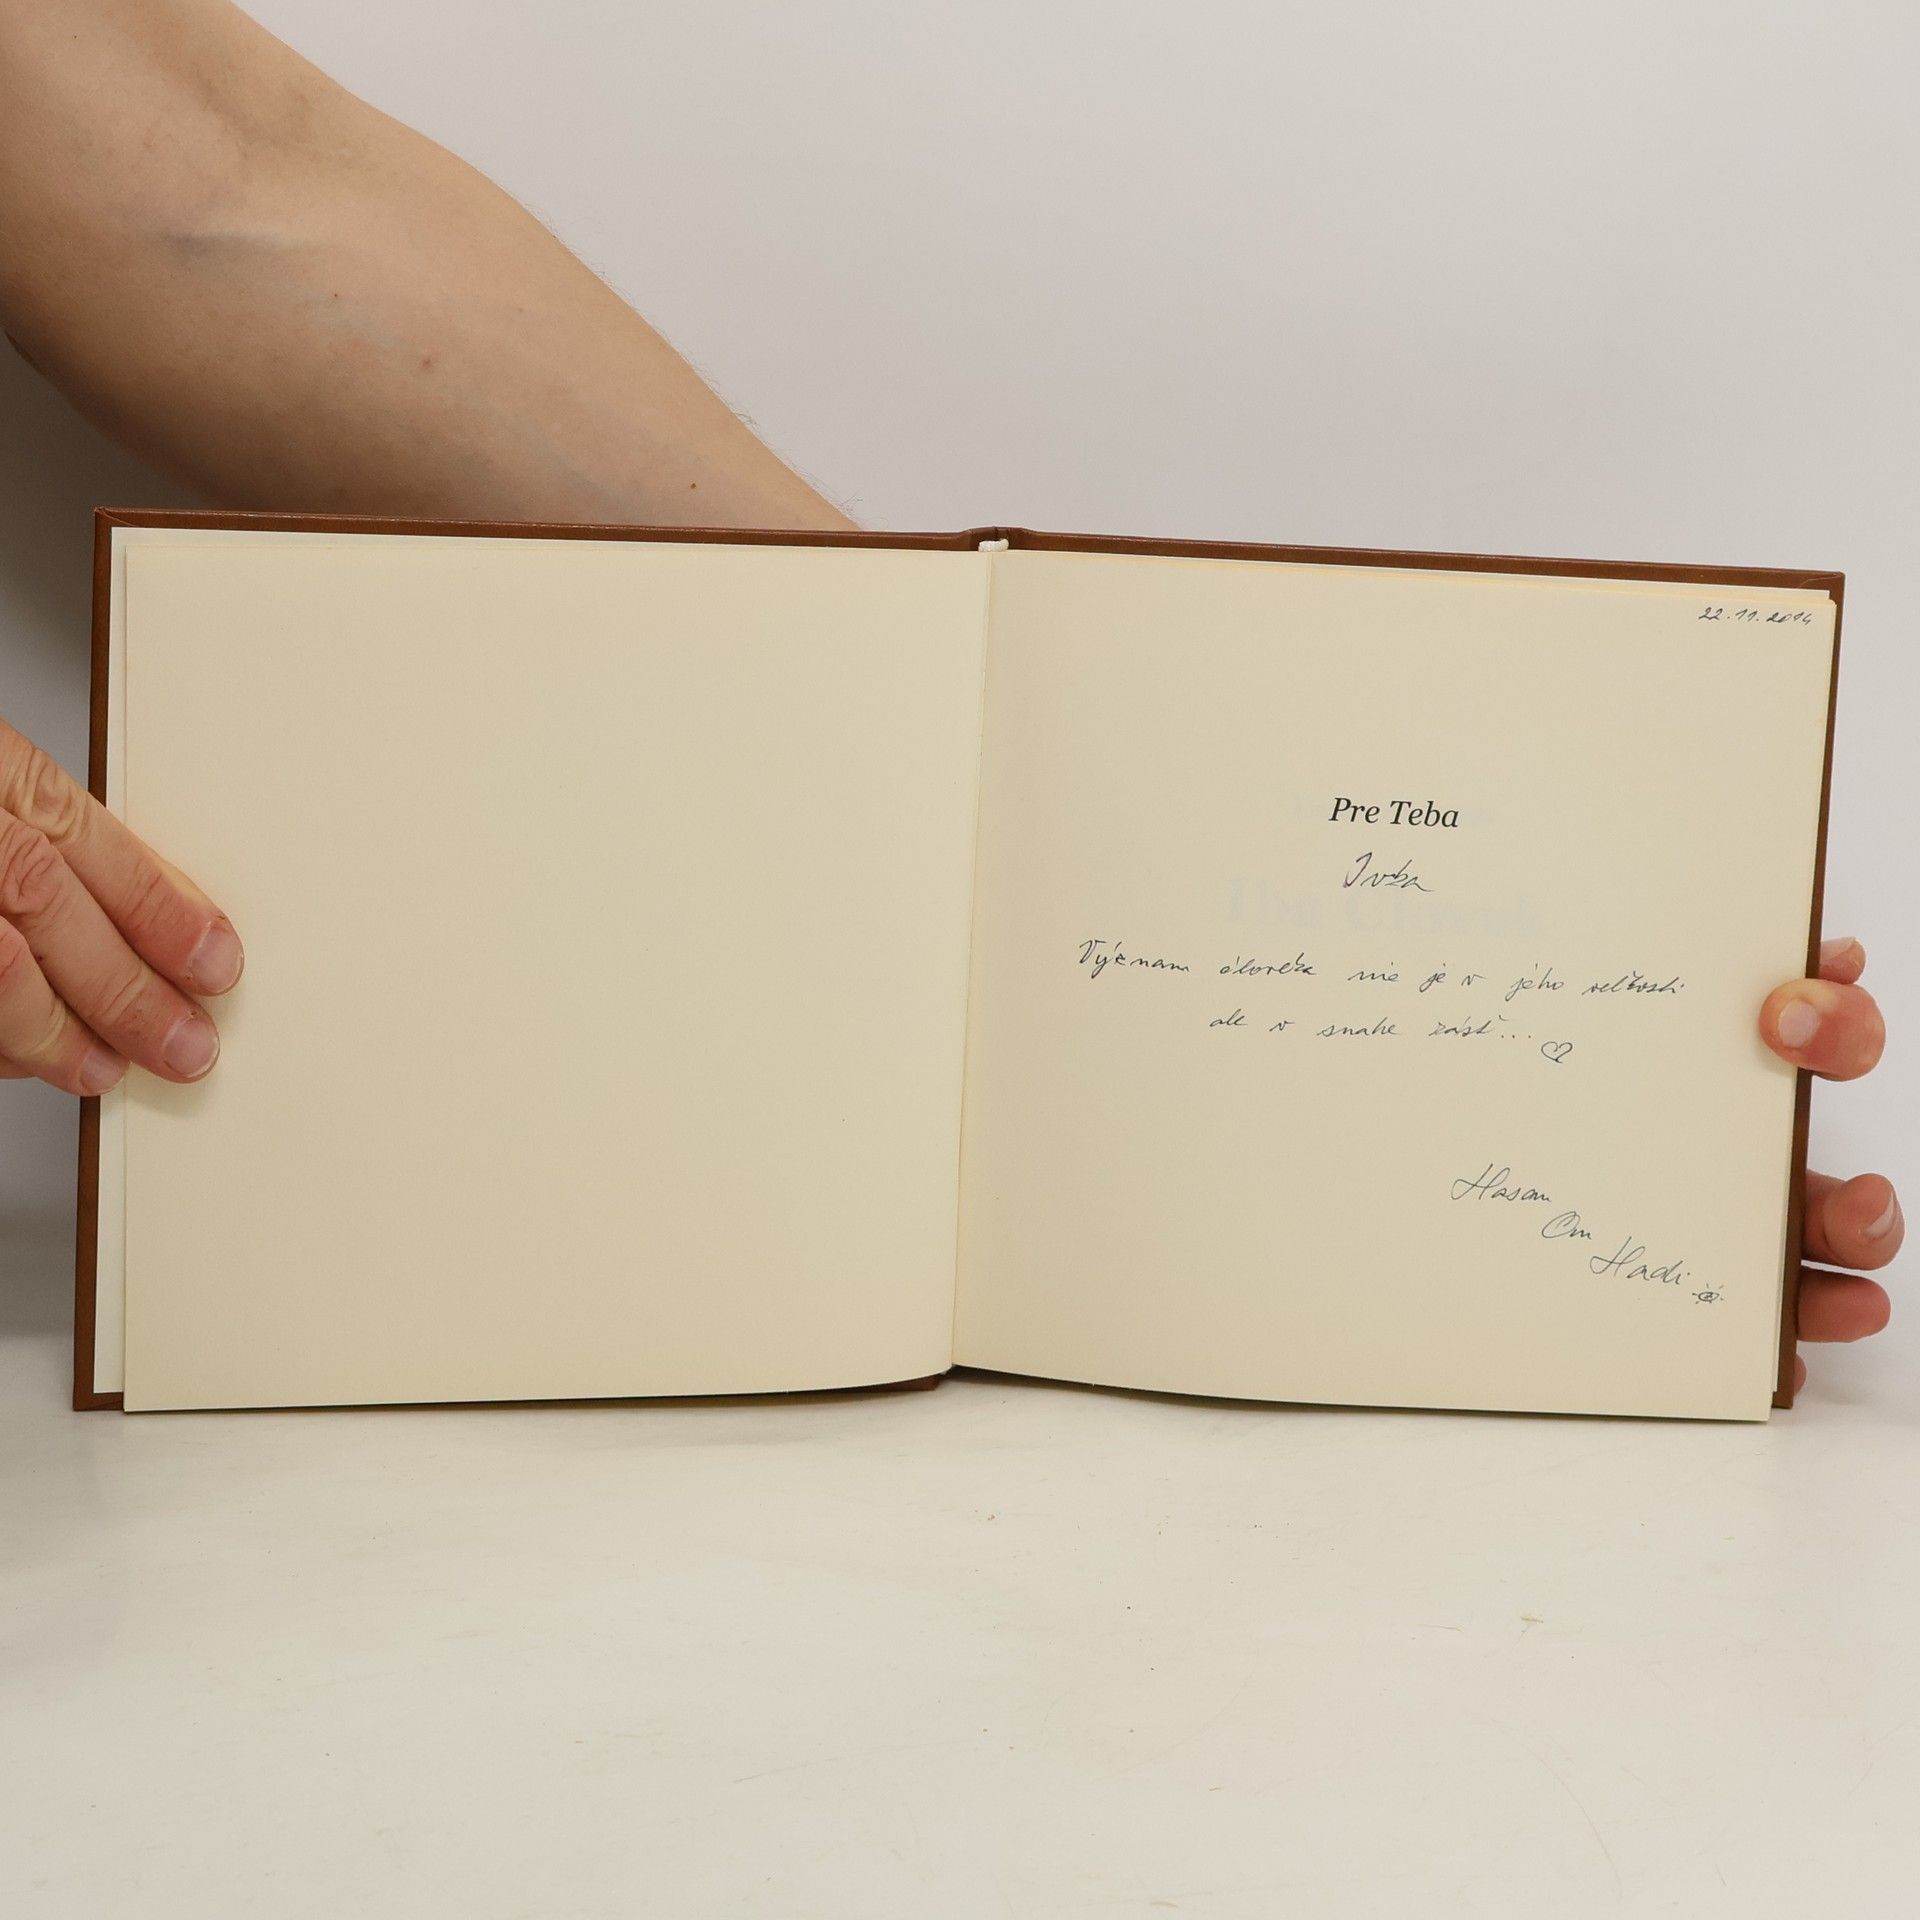 22.11.2014
Pre Teba
Ivka
Význam človeka nie je v jeho veľkosti
ale v snahe rásť...
Hasan
Om
Hadi